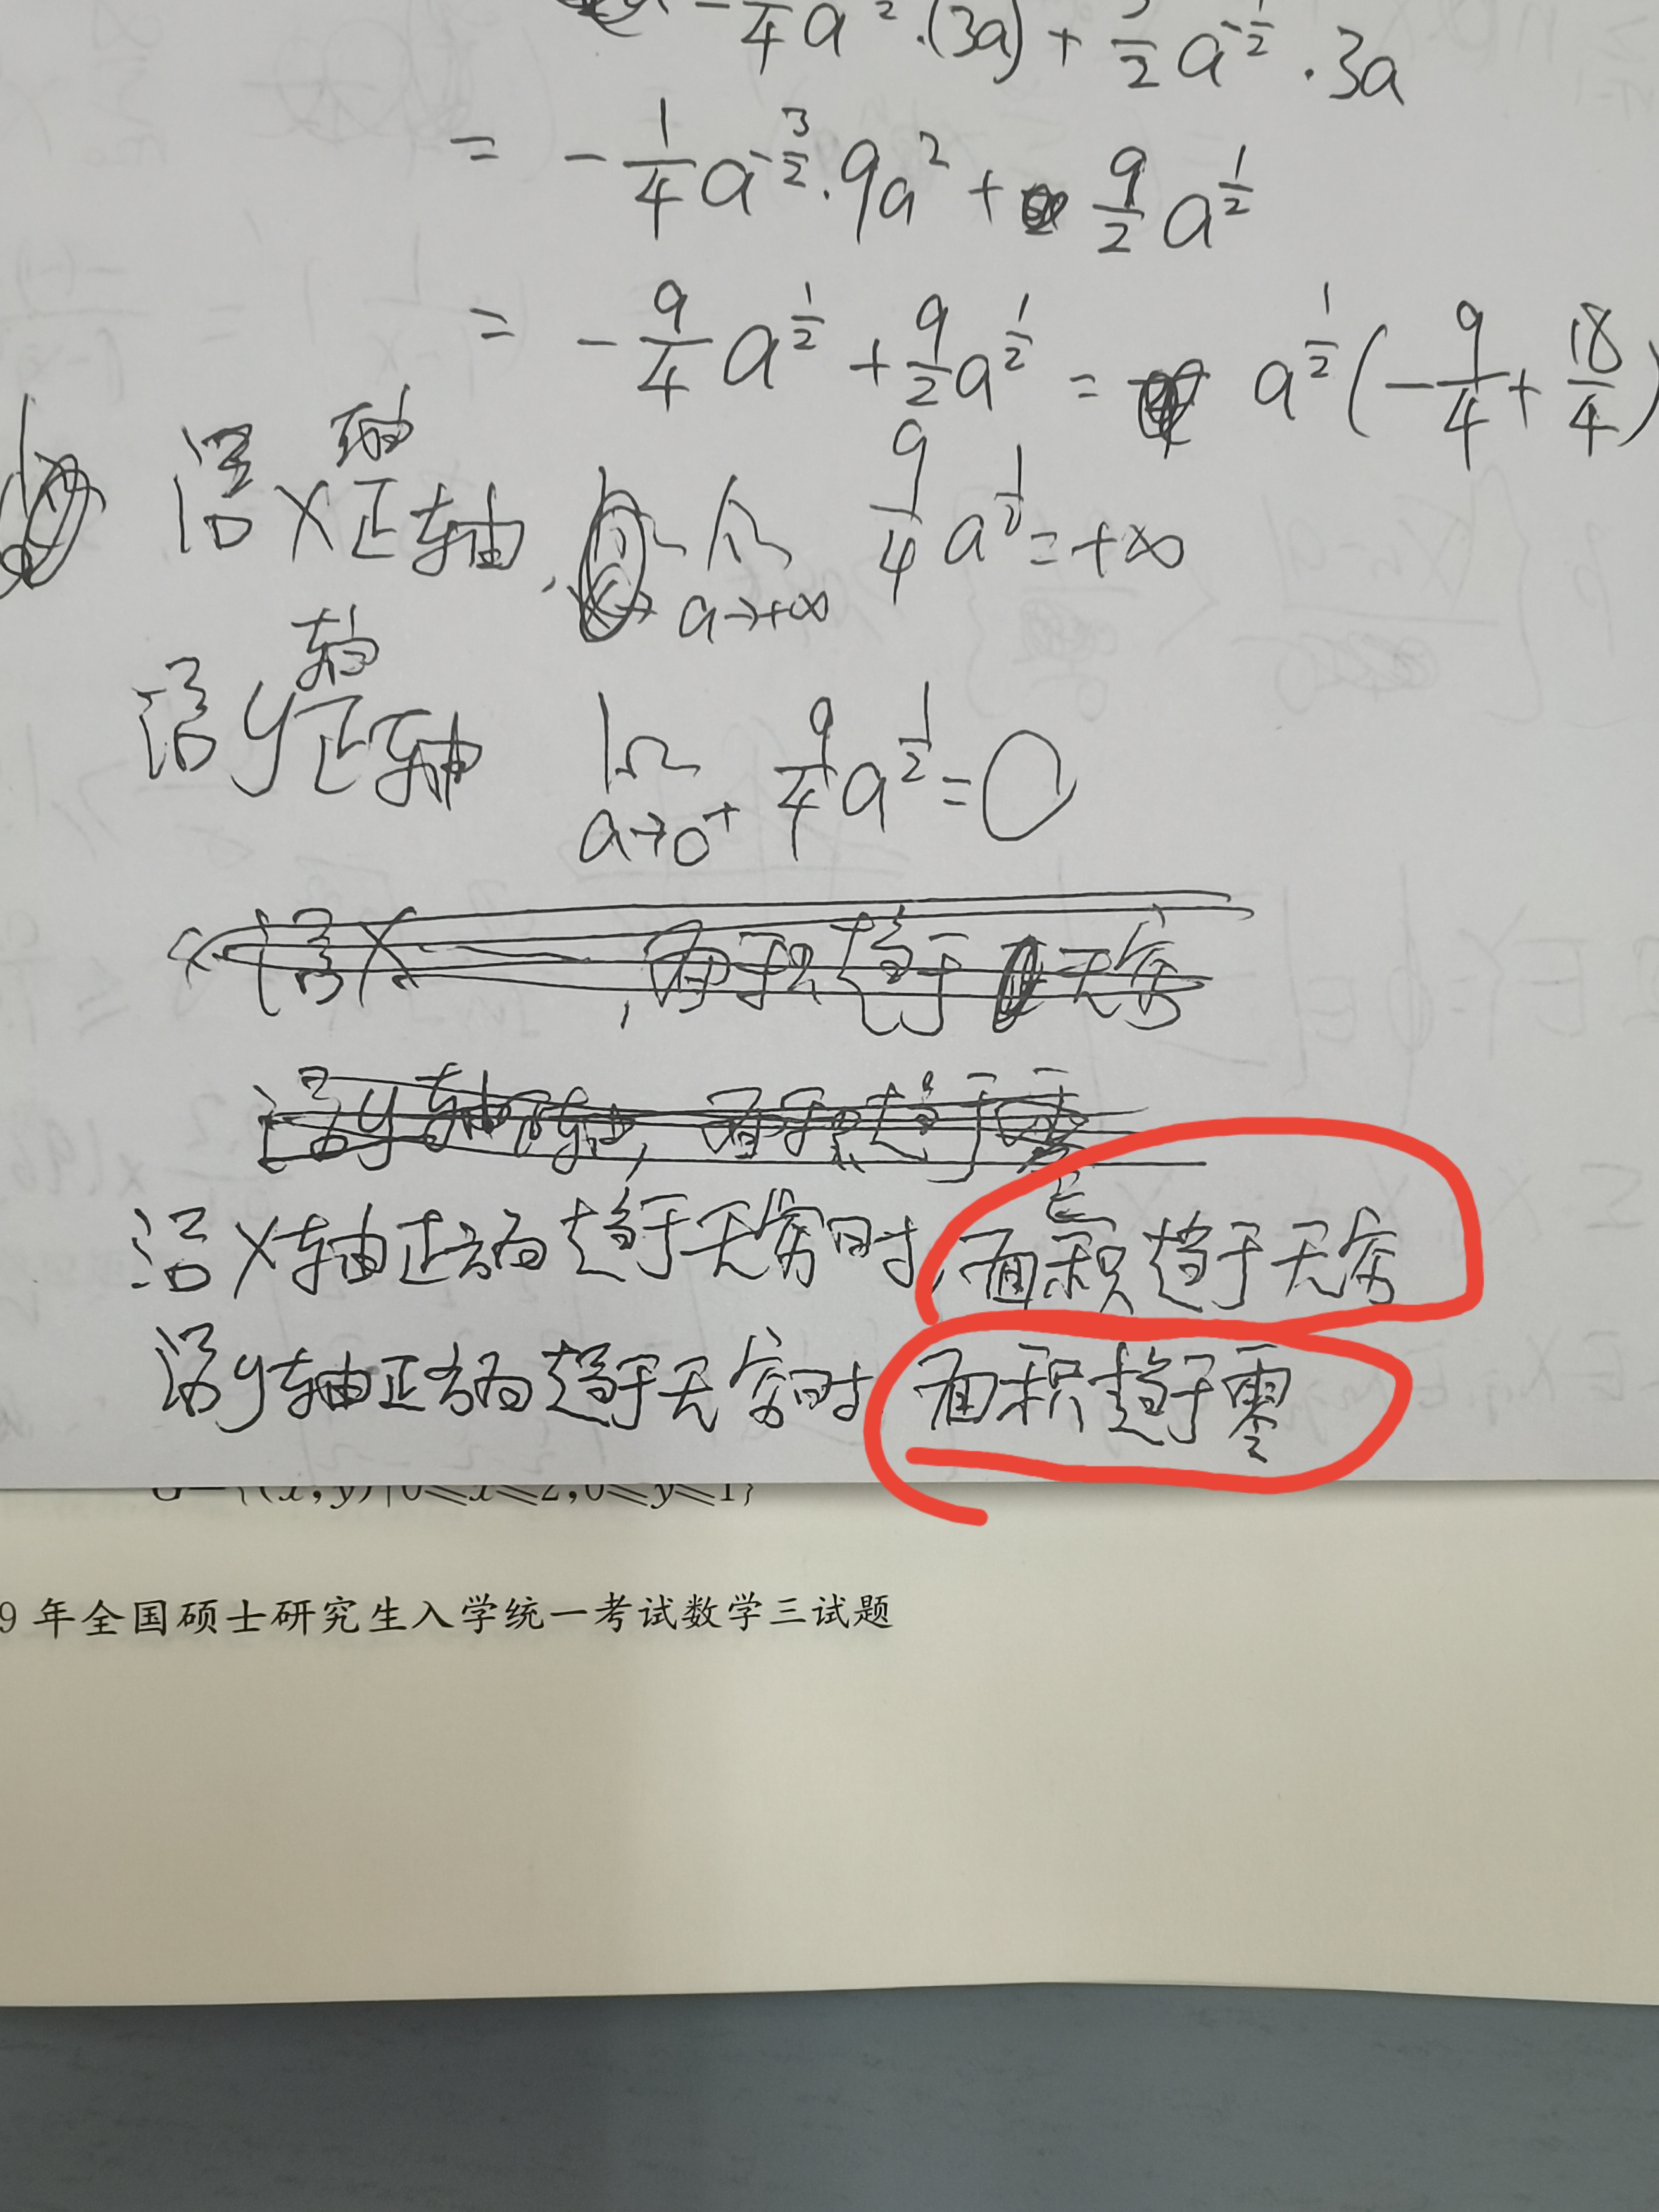 -1/4 a^2·(3a) + 3/2 a^{-1/2}·3a
= -1/4 a^{-3/2}·9a^2 + 9/2 a^{1/2}
= -9/4 a^{1/2} + 9/2 a^{1/2} = a^{1/2}(-9/4 + 18/4)
轴
沿X正轴, lim a→+∞ 9/4 a^{1/2} = +∞
轴
沿y正轴 lim a→0^+ 9/4 a^{1/2} = 0
沿X ,面积趋于无穷
沿y轴 轴,面积趋于零
沿X轴正方向趋于无穷时,面积趋于无穷
沿y轴正方向趋于无穷时 面积趋于零
G={(x,y)|0≤x≤2,0≤y≤1}
9年全国硕士研究生入学统一考试数学三试题